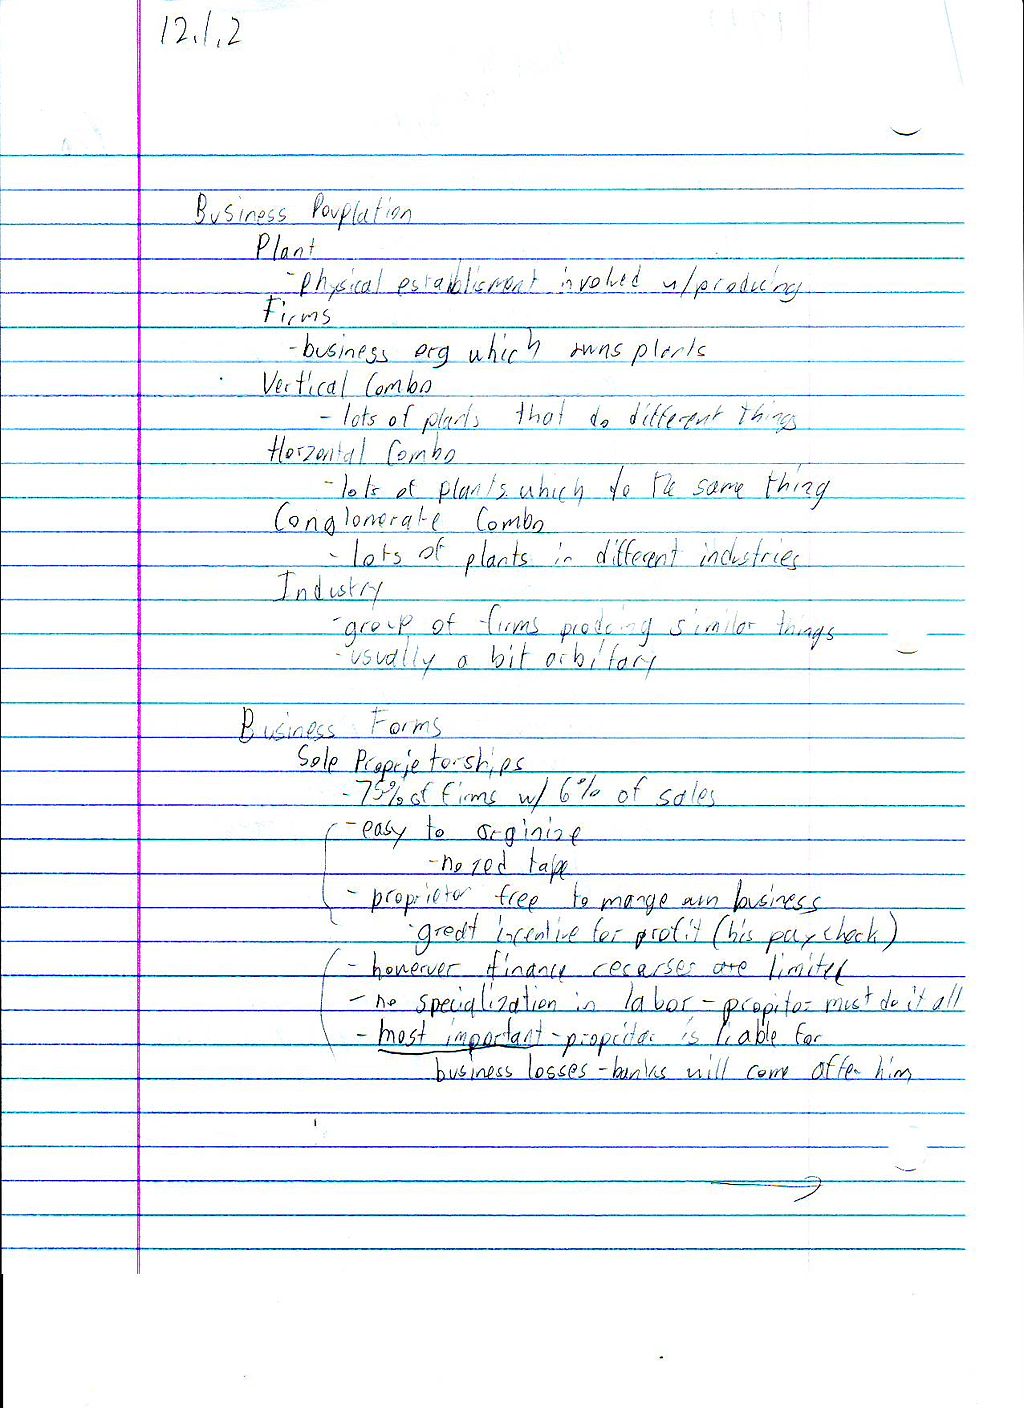 12.1.2
Business Pouplation
Plant
- physical establisment involved w/producing
Firms
- business org which owns plants
Vertical Combo
- lots of plants that do different things
Horzontal Combo
- lots of plants which do the same thing
Conglomerate Combo
- lots of plants in different industries
Industry
- group of firms prodcing similar things
- usually a bit arbitary
Business Forms
Sole Proprietorships
- 75% of firms w/ 6% of sales
- easy to orginize
- no red tape
- proprietor free to mange own business
- great incentive for profit (his paycheck)
- however finance recarses are limited
- no specialization in labor - propitor must do it all
- most important - propritor is liable for
business losses - banks will come after him